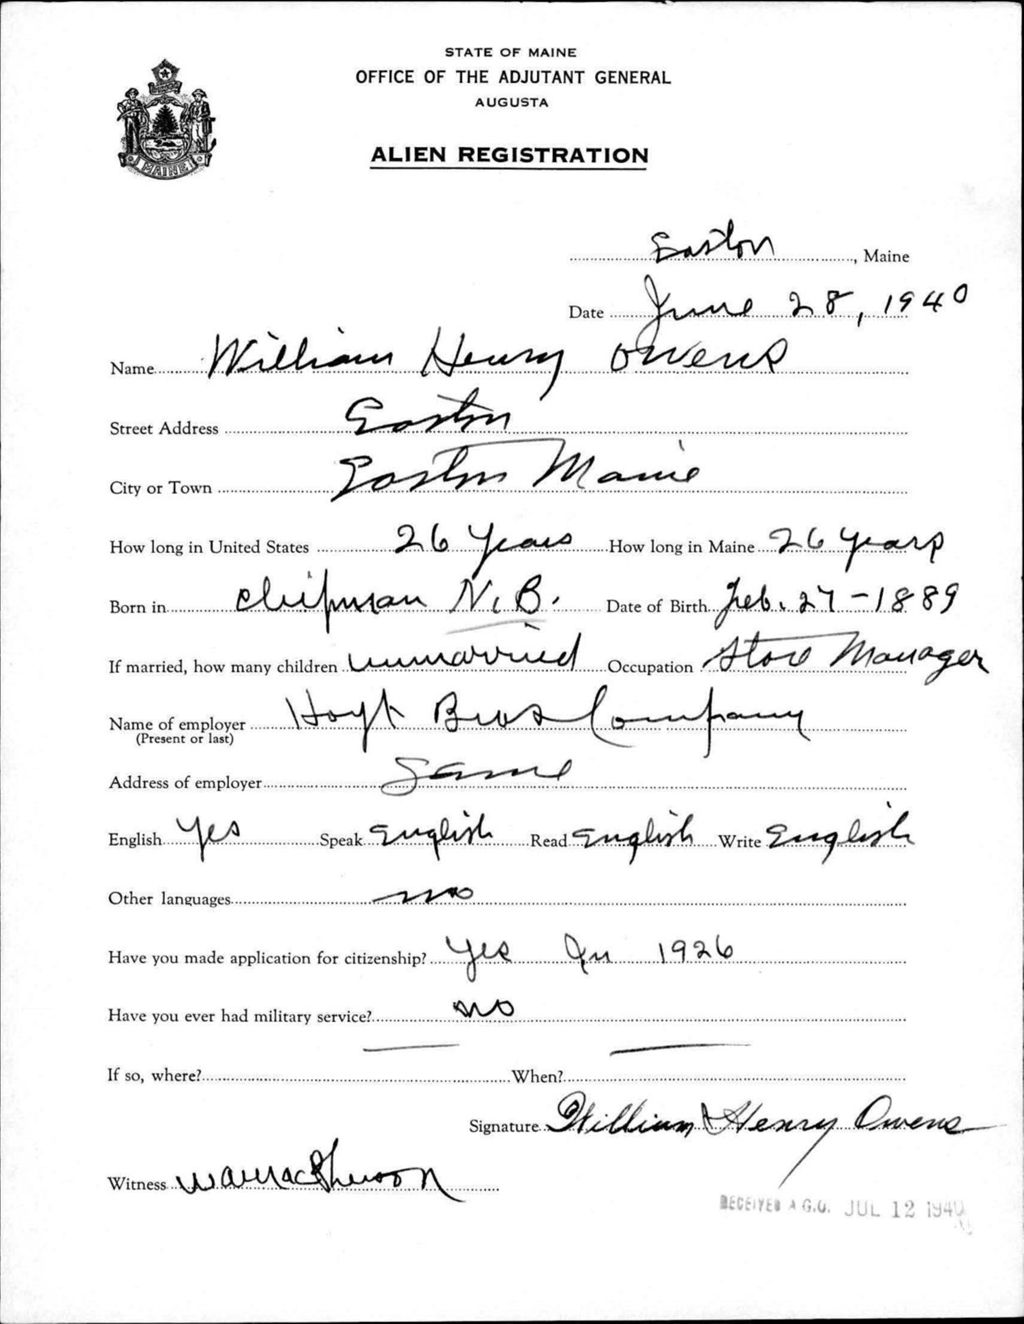 STATE OF MAINE
OFFICE OF THE ADJUTANT GENERAL
AUGUSTA
ALIEN REGISTRATION
MAINE
Easton, Maine
Date June 28, 1940
Name William Henry Owens
Street Address Easton
City or Town Easton Maine
How long in United States 26 Years How long in Maine 26 years
Born in Chipman N.B. Date of Birth Feb. 27-1889
If married, how many children unmarried Occupation Store Manager
Name of employer Hoyt Bros Company
(Present or last)
Address of employer Same
English Yes Speak English Read English Write English
Other languages no
Have you made application for citizenship? Yes In 1926
Have you ever had military service? no
If so, where? When?
Signature William Henry Owens
Witness
RECEIVED A.G.O. JUL 12 1940